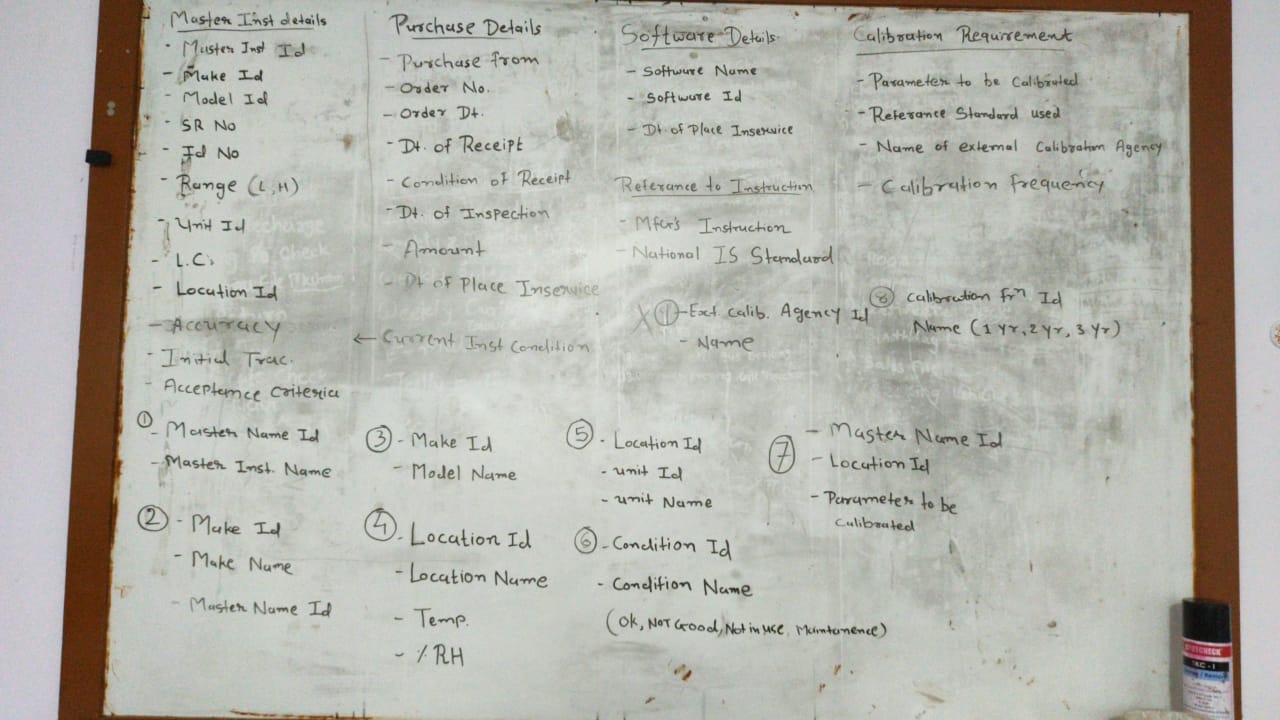 Master Inst details
- Master Inst Id
- Make Id
- Model Id
- SR No
- Id No
- Range (L, H)
- Unit Id
- L.C.
- Location Id
- Accuracy
- Initial Trac.
- Acceptance Criteria
Purchase Details
- Purchase from
- Order No.
- Order Dt.
- Dt. of Receipt
- Condition of Receipt
- Dt. of Inspection
- Amount
- Dt of Place Inservice
← Current Inst Condition
Software Details
- Software Name
- Software Id
- Dt. of Place Inservice
Referance to Instruction
- Mfur's Instruction
- National IS Standard
X ① - Ext. Calib. Agency Id
- Name
Calibration Requirement
- Parameter to be Calibrated
- Referance Standard used
- Name of external Calibration Agency
- Calibration frequency
⑧ Calibration frⁿ Id
Name (1 yr, 2 yr, 3 yr)
① - Master Name Id
- Master Inst. Name
② - Make Id
- Make Name
- Master Name Id
③ - Make Id
- Model Name
④ - Location Id
- Location Name
- Temp.
- % RH
⑤ - Location Id
- unit Id
- unit Name
⑥ - Condition Id
- Condition Name
(Ok, Not Good, Not in use, Maintanence)
⑦ - Master Name Id
- Location Id
- Parameter to be
Calibrated
SPOTCHECK
SKC - 1